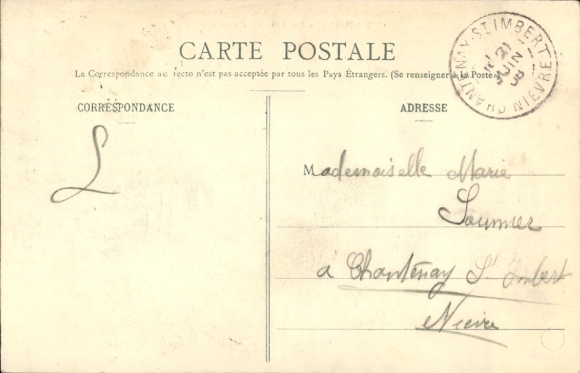 CARTE POSTALE
La Correspondance au recto n'est pas acceptée par tous les Pays Étrangers. (Se renseigner à la Poste.)
CHANTENAY-ST IMBERT NIEVRE
21 JUIN 08
CORRESPONDANCE
ADRESSE
L
Mademoiselle Marie
Saumier
à Chantenay St Imbert
Nièvre